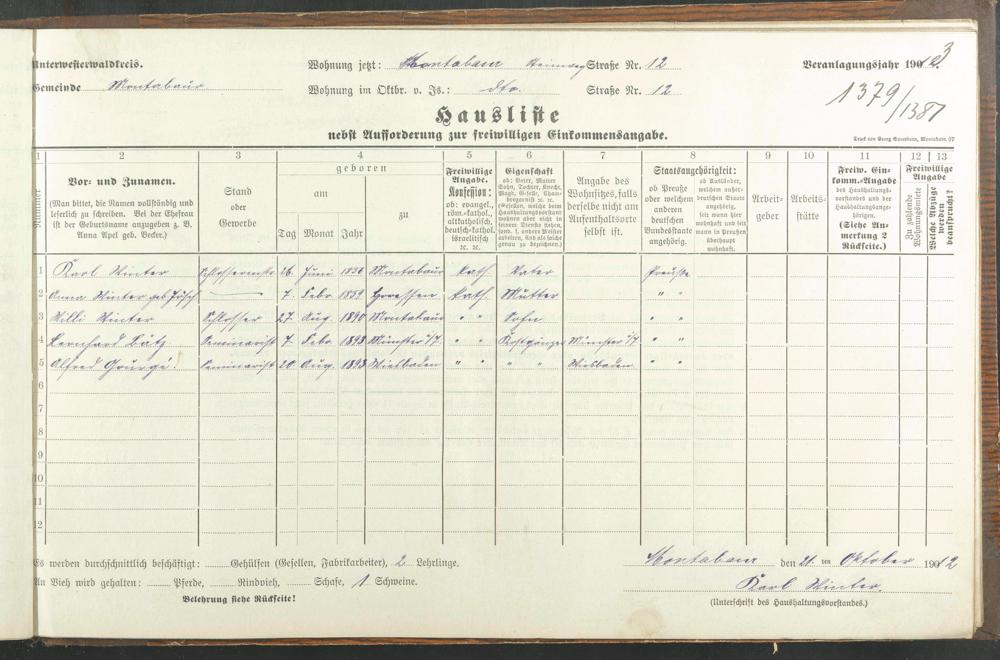 Unterwesterwaldkreis.
Wohnung jetzt: Montabaur Steinweg Straße Nr. 12
Veranlagungsjahr 1913.
Gemeinde Montabaur
Wohnung im Oktbr. v. Js.: dto. Straße Nr. 12
1379/1381
Hausliste
nebst Aufforderung zur freiwilligen Einkommensangabe.
Druck von Georg Sauerborn, Montabaur. 07
1 2 3 4 5 6 7 8 9 10 11 12 13
Nummer
Vor- und Zunamen.
(Man bittet, die Namen vollständig und leserlich zu schreiben. Bei der Ehefrau ist der Geburtsname anzugeben z. B. Anna Apel geb. Becker.)
Stand oder Gewerbe
geboren
am
Tag Monat Jahr
zu
Freiwillige Angabe.
Konfession:
ob: evangel., röm.-kathol., altkatholisch, deutsch-kathol. israelitisch ꝛc. ꝛc.
Eigenschaft
ob: Vater, Mutter Sohn, Tochter, Knecht, Magd, Geselle, Chambregarnist ꝛc. ꝛc.
(Gesellen, welche beim Haushaltungsvorstand wohnen aber nicht in seinem Dienste stehen, sond. f. andere Meister arbeiten, sind als solche genau zu bezeichnen).
Angabe des Wohnsitzes, falls derselbe nicht am Aufenthaltsorte selbst ist.
Staatsangehörigkeit:
ob Preuße oder welchem anderen deutschen Bundesstaate angehörig.
ob Ausländer, welchem außerdeutschen Staate angehörig, seit wann hier wohnhaft und seit wann in Preußen überhaupt wohnhaft.
Arbeitgeber
Arbeitsstätte
Freiw. Einkomm.-Angabe
des Haushaltungsvorstandes und der Haushaltungsangehörigen.
(Siehe Anmerkung 2 Rückseite.)
Freiwillige Angabe
Zu zahlende Wohnungsmiete
Welche Abzüge werden beansprucht?
1 Karl Winter Schlossermstr. 26. Juni 1856 Montabaur kath. Vater Preuße
2 Anna Winter geb. — 7. Febr. 1859 kath. Mutter " "
3 Willi Winter Schlosser 27. Aug. 1890 Montabaur " " Sohn " "
4 Bernhard Seminarist 7. Febr. 1893 Münster i/T. " " Kostgänger Münster i/T. " "
5 Alfred Seminarist 20. Aug. 1893 Wiesbaden " " " " Wiesbaden " "
6
7
8
9
10
11
12
Es werden durchschnittlich beschäftigt: Gehülfen (Gesellen, Fabrikarbeiter), 2 Lehrlinge.
Montabaur den 21. ten Oktober 1912
An Vieh wird gehalten: Pferde, Rindvieh, Schafe, 1 Schweine.
Karl Winter.
Belehrung siehe Rückseite!
(Unterschrift des Haushaltungsvorstandes.)